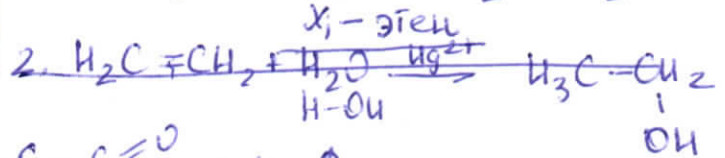 X₁ – этен
2. H₂C=CH₂ + H₂O Hg²⁺ → H₃C–CH₂
H–OH
OH
C=O